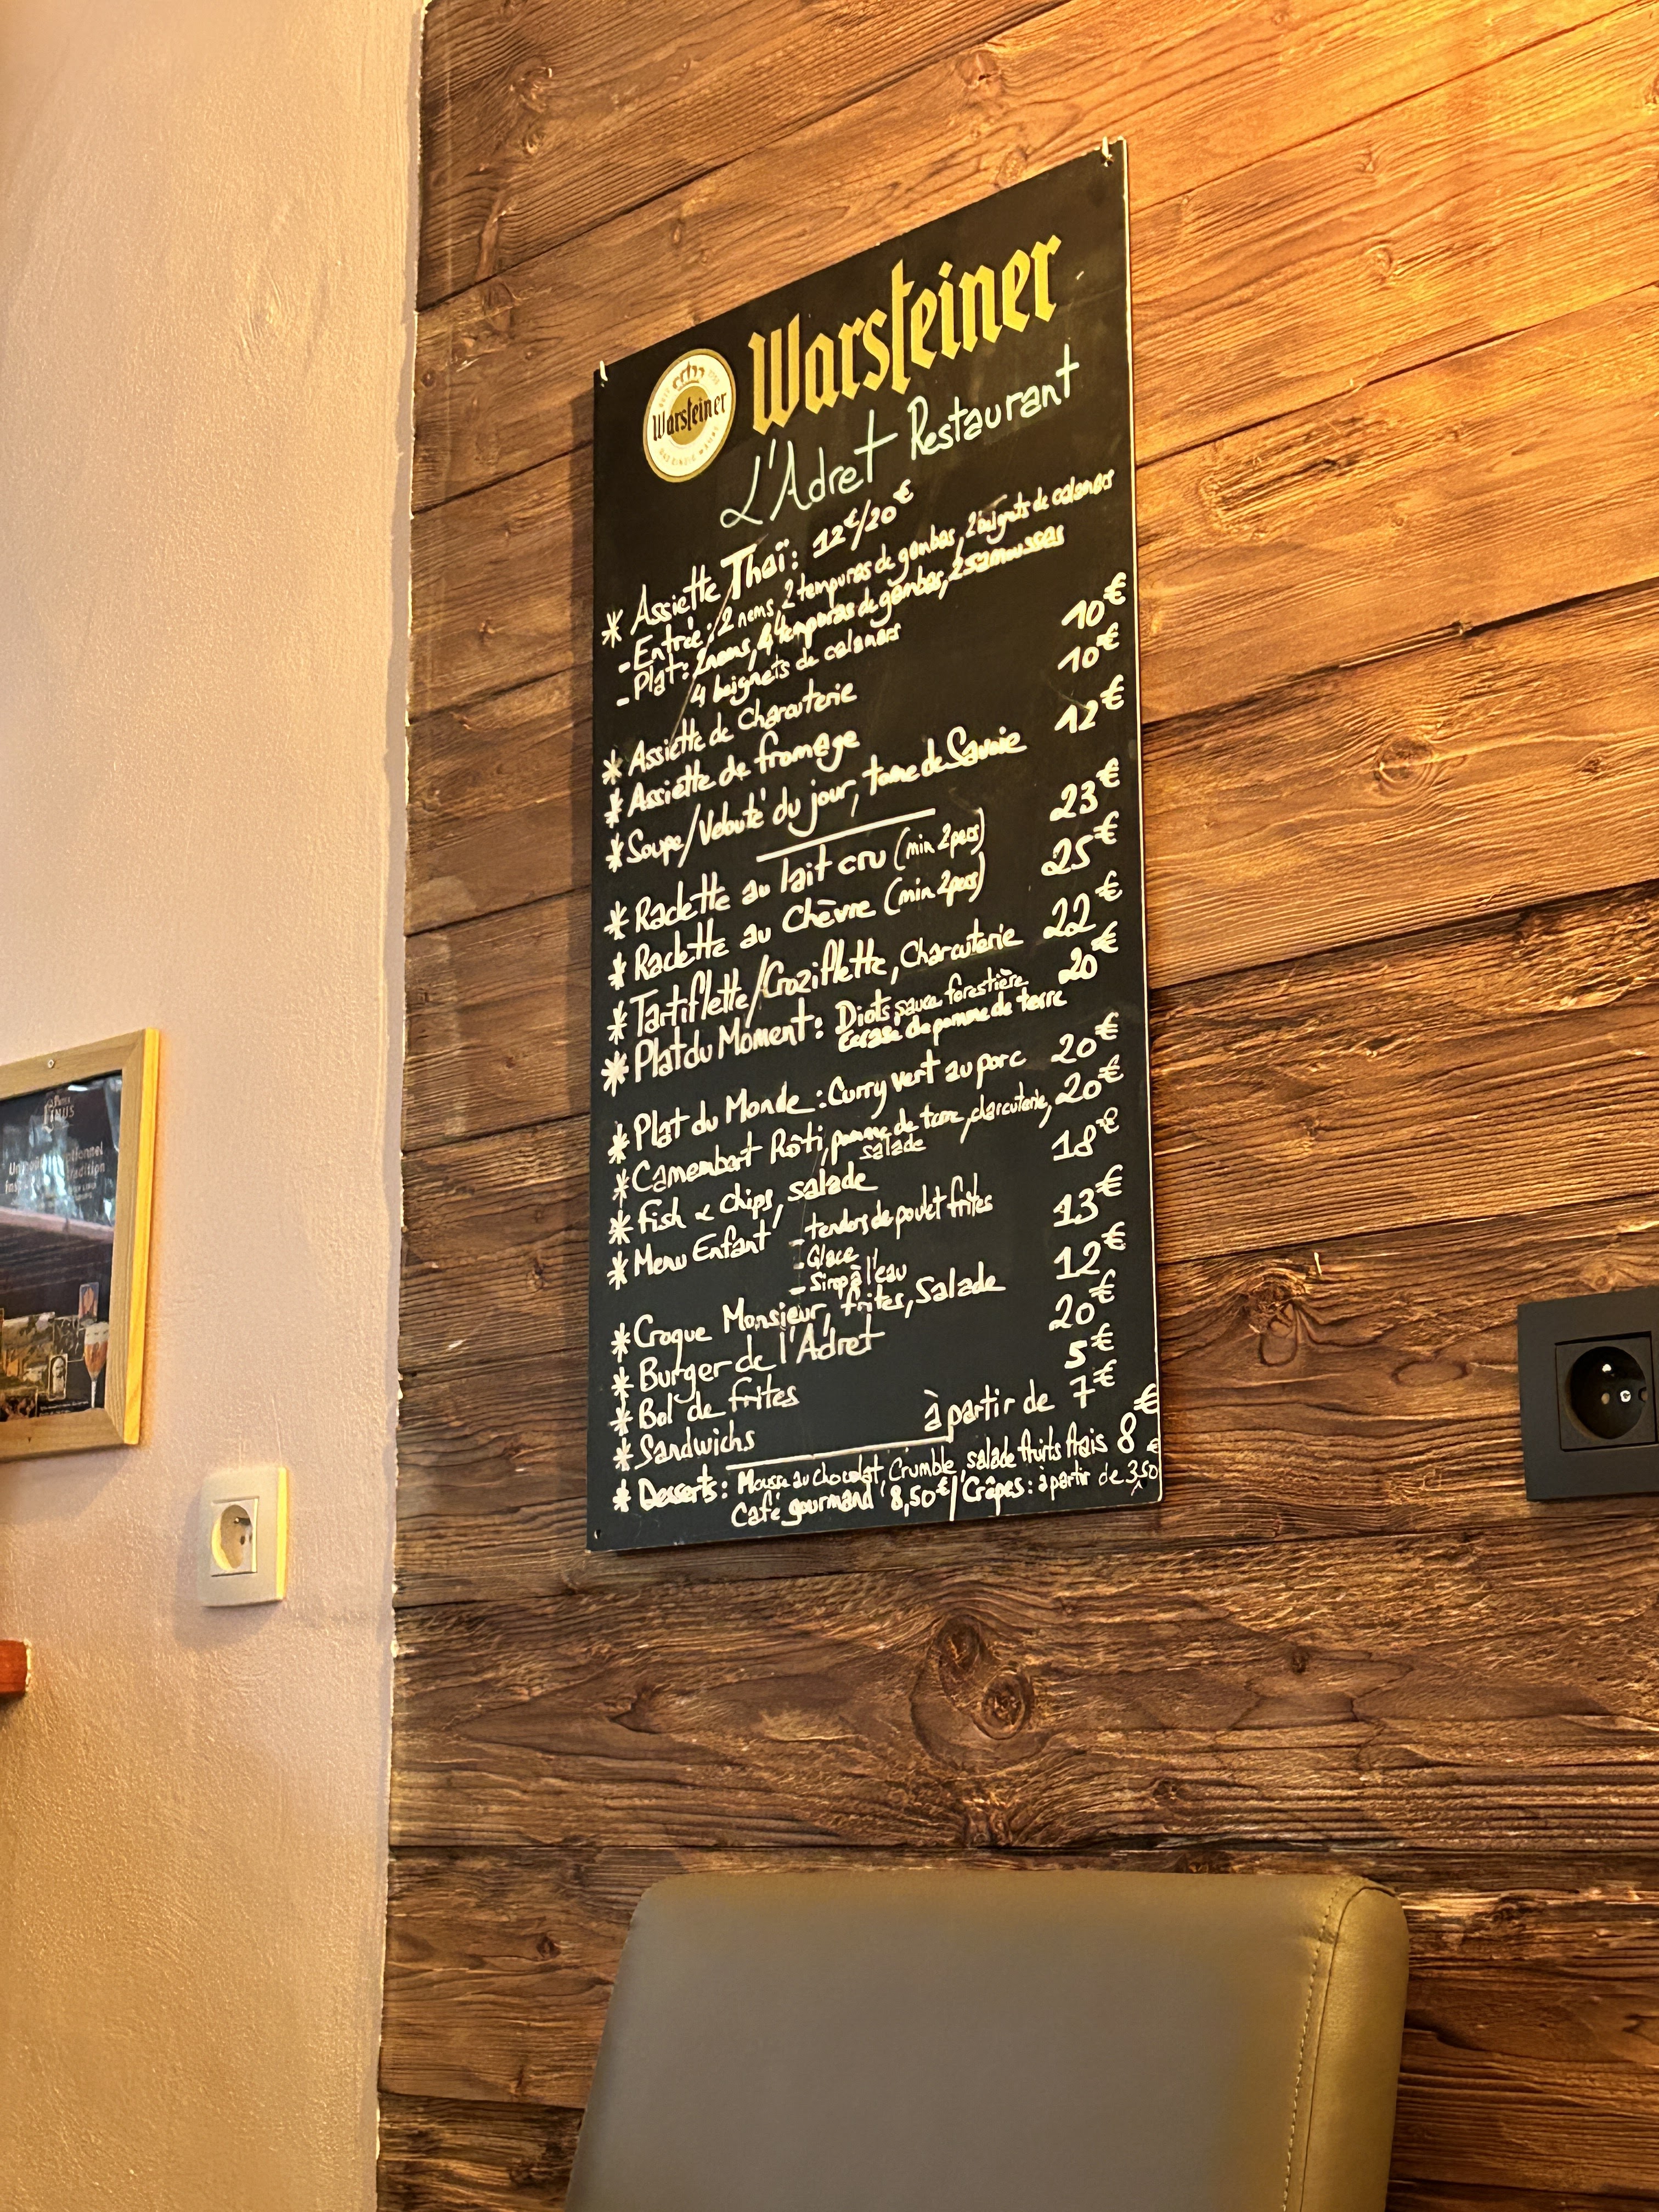 Warsteiner
Warsteiner
L'Adret Restaurant
* Assiette Thaï : 12€/20€
- Entrée : 2 nems, 2 tempuras de gambas, 2 beignets de calamars
- Plat : 2 nems, 4 tempuras de gambas, 2 samoussas
4 beignets de calamars
* Assiette de Charcuterie 10€
* Assiette de fromage 10€
* Soupe/Velouté du jour, tome de Savoie 12€
* Raclette au lait cru (min 2 pers) 23€
* Raclette au Chèvre (min 2 pers) 25€
* Tartiflette/Croziflette, Charcuterie 22€
* Plat du Moment : Diots sauce forestière 20€
Ecrasé de pomme de terre
* Plat du Monde : Curry vert au porc 20€
* Camembert Rôti, pomme de terre, charcuterie, 20€
salade
* Fish & chips, salade 18€
* Menu Enfant - tenders de poulet frites 13€
- Glace
- Sirop à l'eau
* Croque Monsieur, frites, Salade 12€
* Burger de l'Adret 20€
* Bol de frites 5€
* Sandwichs à partir de 7€
* Desserts : Mousse au chocolat, Crumble, salade fruits frais 8€
Café gourmand 8,50€/Crêpes : à partir de 3,50€